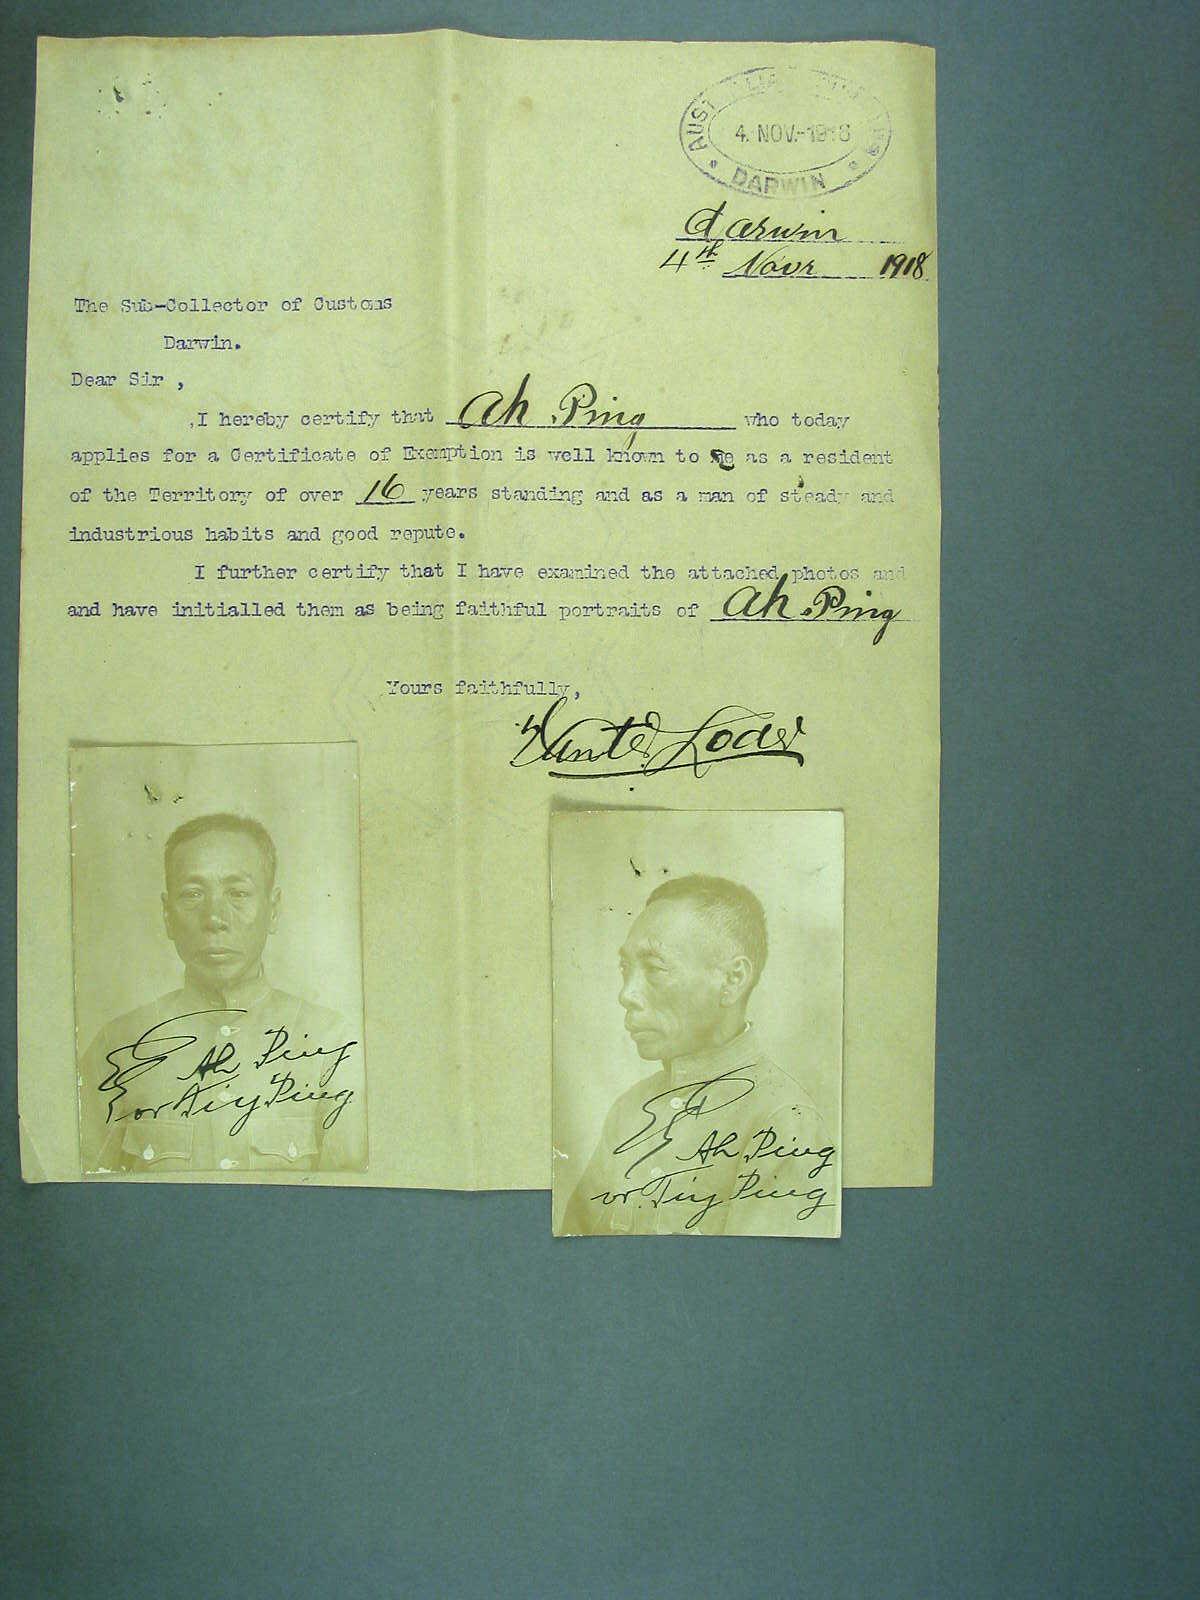 AUST
4. NOV.-1918
DARWIN
Darwin
4th Novr 1918
The Sub-Collector of Customs
Darwin.
Dear Sir ,
I hereby certify that Ah Ping who today
applies for a Certificate of Exemption is well known to me as a resident
of the Territory of over 16 years standing and as a man of steady and
industrious habits and good repute.
I further certify that I have examined the attached photos and
and have initialled them as being faithful portraits of Ah Ping
Yours faithfully,
Ah Ping
or Tiy Ping
Ah Ping
or Tiy Ping